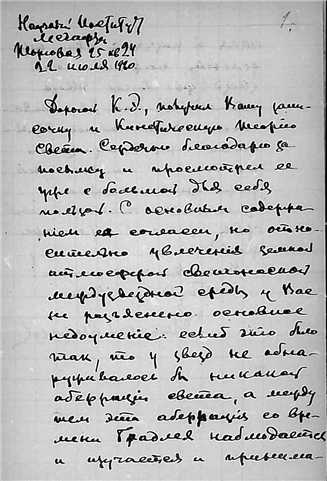 Научный Институт
Торговая 25 кв 24
22 июля 1920
1.
Дорогой К. Э., получил Вашу запи-
сочку и Кинетическую теорию
света. Сердечно благодарю за
посылку и просмотрел ее
уже с большой для себя
пользой. С основным содержа-
нием ея согласен, но отно-
сительно увлечения земной
атмосферой светоносной
междузвездной среды у Вас
не разъяснено основное
недоумение: если б это было
так, то у звезд не обна-
руживалось бы никакой
аберрации света, а между
тем эта аберрация со вре-
мени Брадлея наблюдается
и изучается и принима-